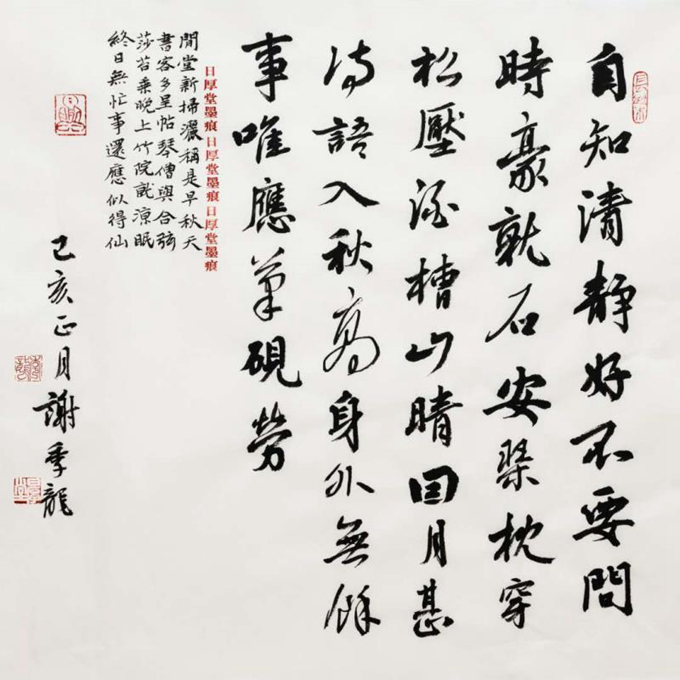 自知清靜好不要問
時豪就石安琹枕穿
松壓酒槽山晴囙月甚
詩語入秋高身外無餘
事唯應筆硯勞
日厚堂墨痕日厚堂墨痕日厚堂墨痕
閒堂新掃灑稱是早秋天
書客多呈帖琴僧與合弦
莎苔乘晚上竹院就涼眠
終日無忙事還應似得仙
己亥正月謝季龍